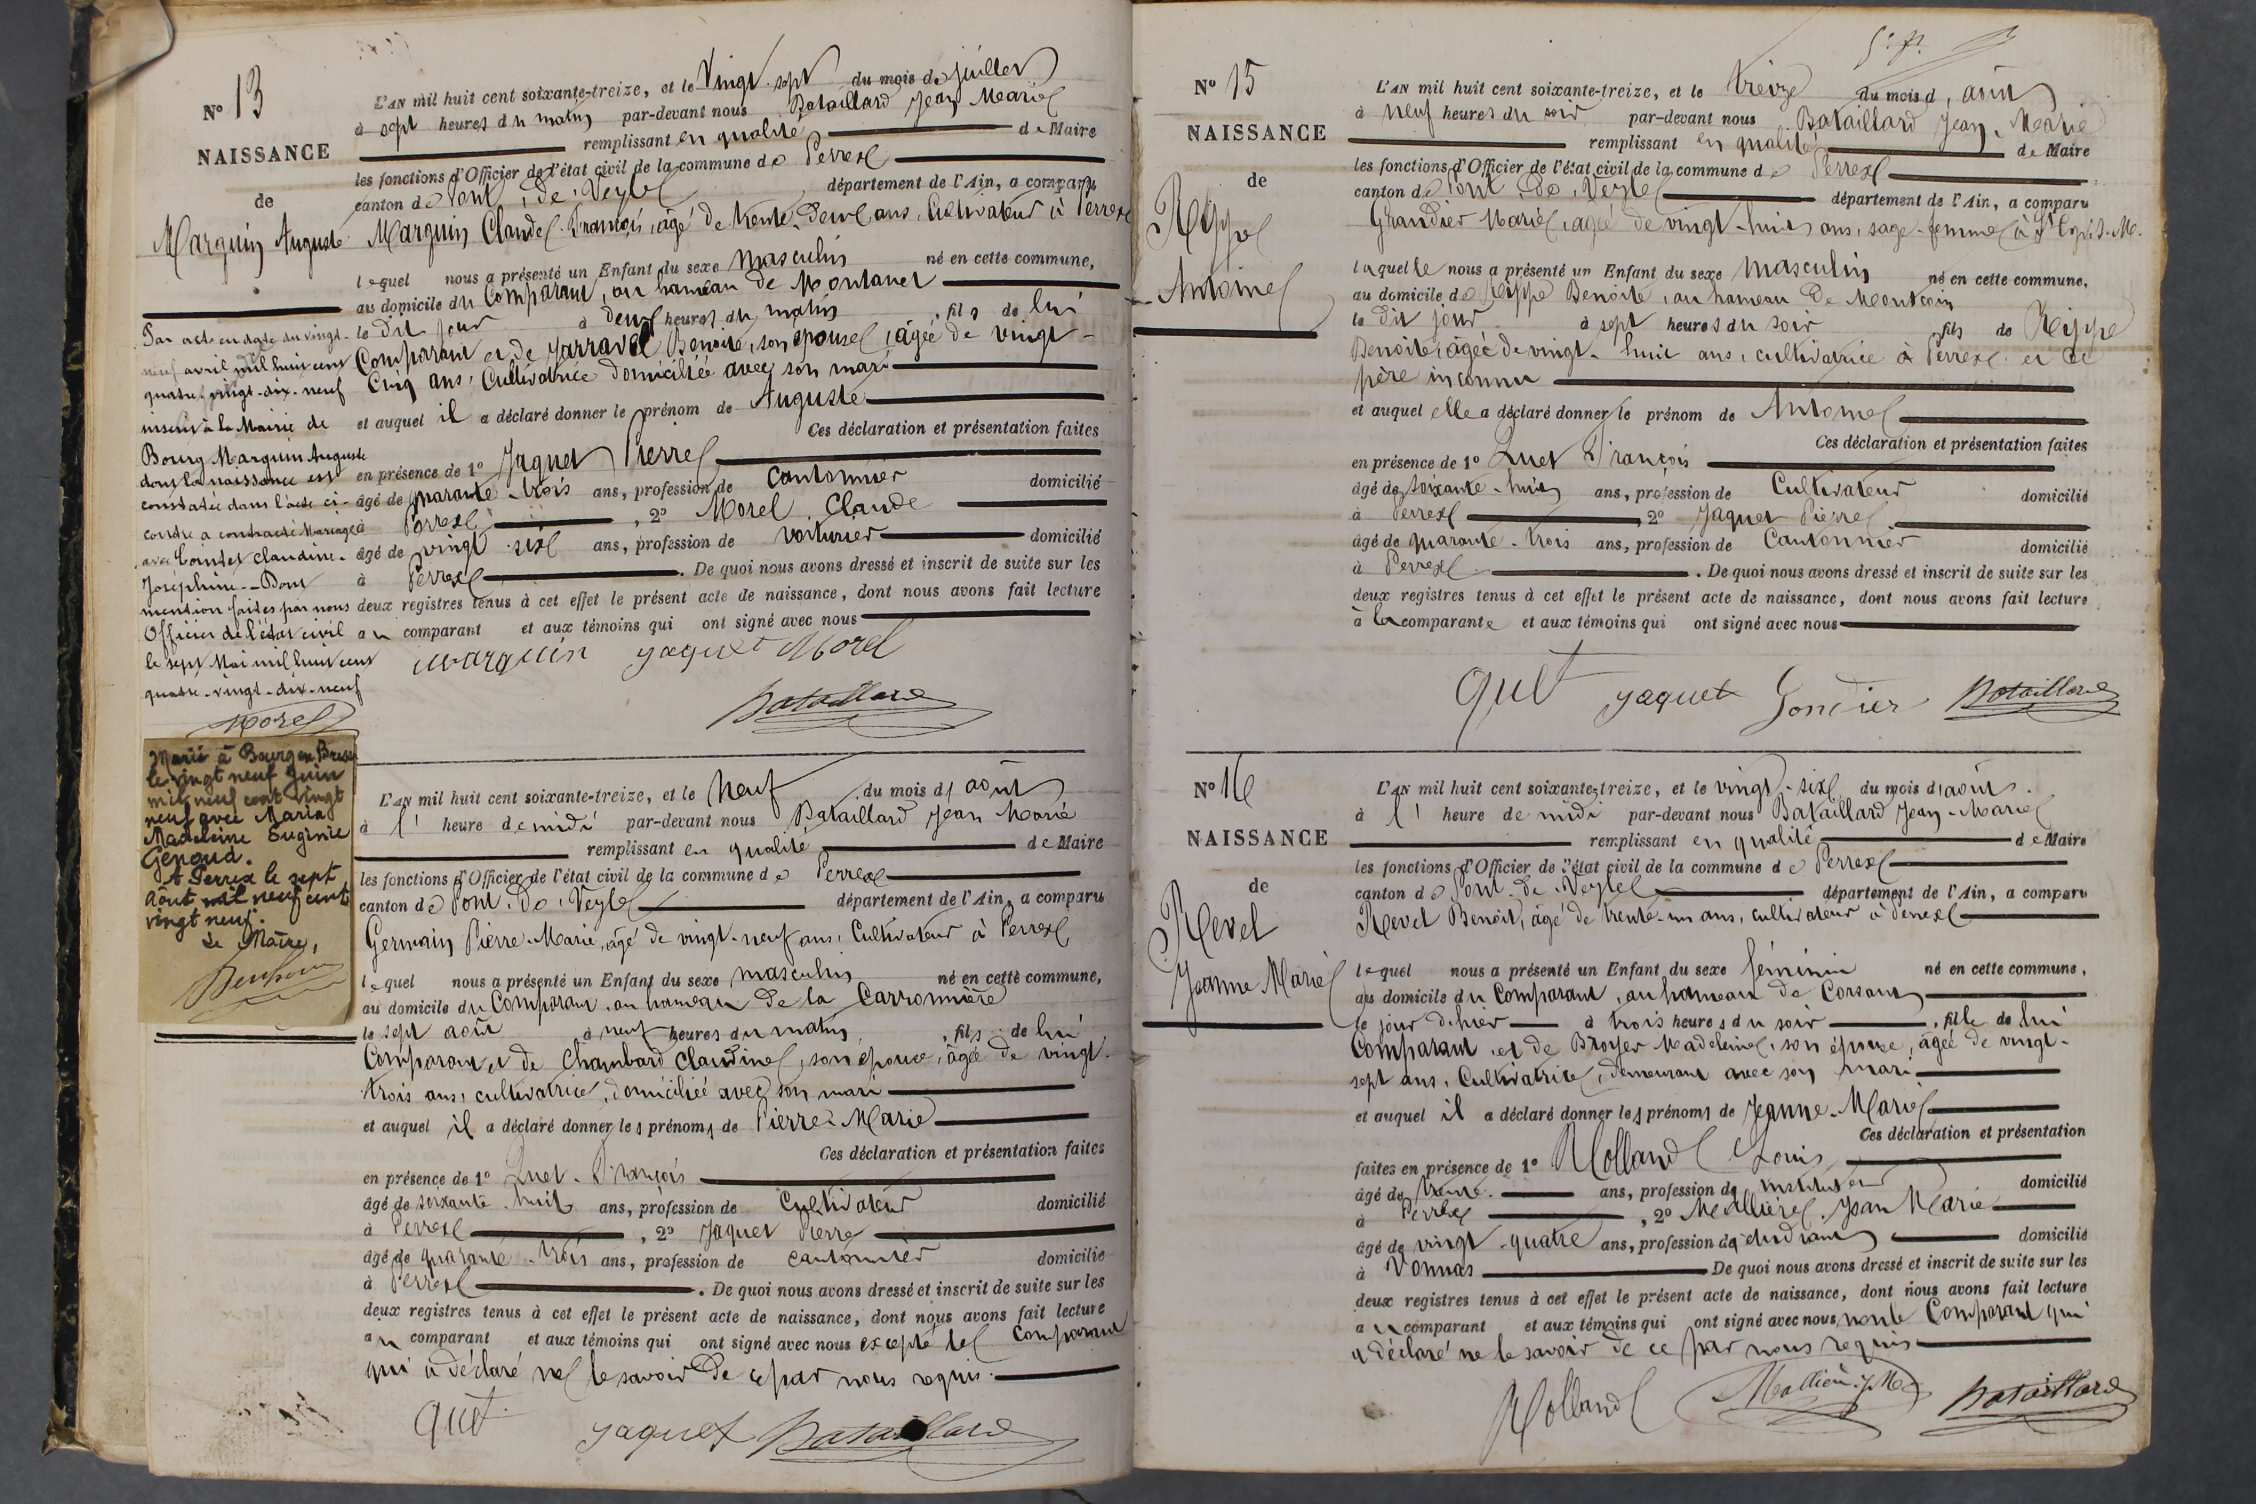 N° 13
NAISSANCE
de
Marguin Auguste
L'AN mil huit cent soixante-treize, et le Vingt-sept du mois de juillet
à sept heures du matin par-devant nous Bataillard Jean Marie
remplissant en qualité de Maire
les fonctions d'Officier de l'état civil de la commune de Perrex
canton de Pont-de-Veyle département de l'Ain, a comparu
Marguin Claude François, âgé de trente-deux ans, Cultivateur à Perrex
lequel nous a présenté un Enfant du sexe masculin né en cette commune,
au domicile du Comparant, au hameau de Montanet
le dit jour à deux heures du matin, fils de lui
Comparant et de Jarravel Benoite, son épouse, âgée de vingt-
cinq ans, Cultivatrice domiciliée avec son mari
et auquel il a déclaré donner le prénom de Auguste
Ces déclaration et présentation faites
en présence de 1° Jaquet Pierre
âgé de quarante-trois ans, profession de cantonnier domicilié
à Perrex, 2° Morel Claude
âgé de vingt-six ans, profession de voiturier domicilié
à Perrex. De quoi nous avons dressé et inscrit de suite sur les
deux registres tenus à cet effet le présent acte de naissance, dont nous avons fait lecture
au comparant et aux témoins qui ont signé avec nous
Marguin Jaquet Morel
Bataillard
Par acte en date du vingt-
neuf avril mil huit cent
quatre-vingt-dix-neuf
inscrit à la Mairie de
Bourg Marguin Auguste
dont la naissance est
constatée dans l'acte ci-
contre a contracté Mariage
avec Comtet Claudine-
Joséphine. Dont
mention faites par nous
Officier de l'état civil
le sept Mai mil huit cent
quatre-vingt-dix-neuf
Morel
Marié à Bourg en Bresse
le vingt neuf Juin
mil neuf cent vingt
neuf avec Maria
Madeleine Eugénie
Genoud.
A Perrex le sept
Août mil neuf cent
vingt neuf.
Le Maire,
L'AN mil huit cent soixante-treize, et le neuf du mois d'août
à l' heure de midi par-devant nous Bataillard Jean Marie
remplissant en qualité de Maire
les fonctions d'Officier de l'état civil de la commune de Perrex
canton de Pont-de-Veyle département de l'Ain, a comparu
Germain Pierre-Marie, âgé de vingt-neuf ans, Cultivateur à Perrex
lequel nous a présenté un Enfant du sexe masculin né en cette commune,
au domicile du Comparant, au hameau de la Carronnière
le sept août à neuf heures du matin, fils de lui
Comparant et de Chambard Claudine, son épouse, âgée de vingt-
trois ans, cultivatrice, domiciliée avec son mari
et auquel il a déclaré donner les prénoms de Pierre-Marie
Ces déclaration et présentation faites
en présence de 1° Quet François
âgé de soixante-huit ans, profession de Cultivateur domicilié
à Perrex, 2° Jaquet Pierre
âgé de quarante-trois ans, profession de cantonnier domicilié
à Perrex. De quoi nous avons dressé et inscrit de suite sur les
deux registres tenus à cet effet le présent acte de naissance, dont nous avons fait lecture
au comparant et aux témoins qui ont signé avec nous excepté le Comparant
qui a déclaré ne le savoir de ce par nous requis.
Quet Jaquet Bataillard
N° 15
NAISSANCE
de
Rippe
Antoine
L'AN mil huit cent soixante-treize, et le treize du mois d'août
à neuf heures du soir par-devant nous Bataillard Jean-Marie
remplissant en qualité de Maire
les fonctions d'Officier de l'état civil de la commune de Perrex
canton de Pont-de-Veyle département de l'Ain, a comparu
Grandier Marie, âgée de vingt-huit ans, sage-femme à St
laquelle nous a présenté un Enfant du sexe masculin né en cette commune,
au domicile de Rippe Benoite, au hameau de Montcoin
le dit jour à sept heures du soir, fils de Rippe
Benoite, âgée de vingt-huit ans, cultivatrice à Perrex et de
père inconnu
et auquel elle a déclaré donner le prénom de Antoine
Ces déclaration et présentation faites
en présence de 1° Quet François
âgé de soixante-huit ans, profession de Cultivateur domicilié
à Perrex, 2° Jaquet Pierre
âgé de quarante-trois ans, profession de Cantonnier domicilié
à Perrex. De quoi nous avons dressé et inscrit de suite sur les
deux registres tenus à cet effet le présent acte de naissance, dont nous avons fait lecture
à la comparante et aux témoins qui ont signé avec nous
Quet Jaquet Gondier Bataillard
N° 16
NAISSANCE
de
Revel
Jeanne Marie
L'AN mil huit cent soixante-treize, et le vingt-six du mois d'août.
à l' heure de midi par-devant nous Bataillard Jean-Marie
remplissant en qualité de Maire
les fonctions d'Officier de l'état civil de la commune de Perrex
canton de Pont-de-Veyle département de l'Ain, a comparu
Revel Benoit, âgé de trente-un ans, cultivateur à Perrex
lequel nous a présenté un Enfant du sexe féminin né en cette commune,
au domicile du Comparant, au hameau de Corsant
le jour d'hier à trois heures du soir, fille de lui
Comparant et de Broyer Madeleine, son épouse, âgée de vingt-
sept ans, Cultivatrice, demeurant avec son mari
et auquel il a déclaré donner les prénoms de Jeanne-Marie
Ces déclaration et présentation
faites en présence de 1° Rolland Louis
âgé de trente ans, profession de instituteur domicilié
à Perrex, 2° Mallière Jean Marie
âgé de vingt-quatre ans, profession de étudiant domicilié
à Vonnas De quoi nous avons dressé et inscrit de suite sur les
deux registres tenus à cet effet le présent acte de naissance, dont nous avons fait lecture
au comparant et aux témoins qui ont signé avec nous, non le Comparant qui
a déclaré ne le savoir de ce par nous requis
Rolland Bataillard